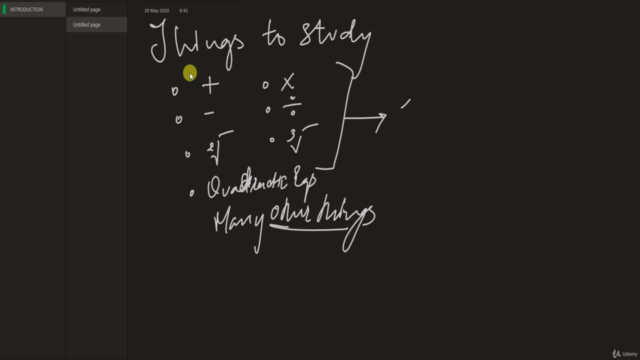 INTRODUCTION
Untitled page
Untitled page
29 May 2020 5:41
Things to study
+ ×
- ÷
²√ ³√
Quadratic Eqs
Many other things
Udemy